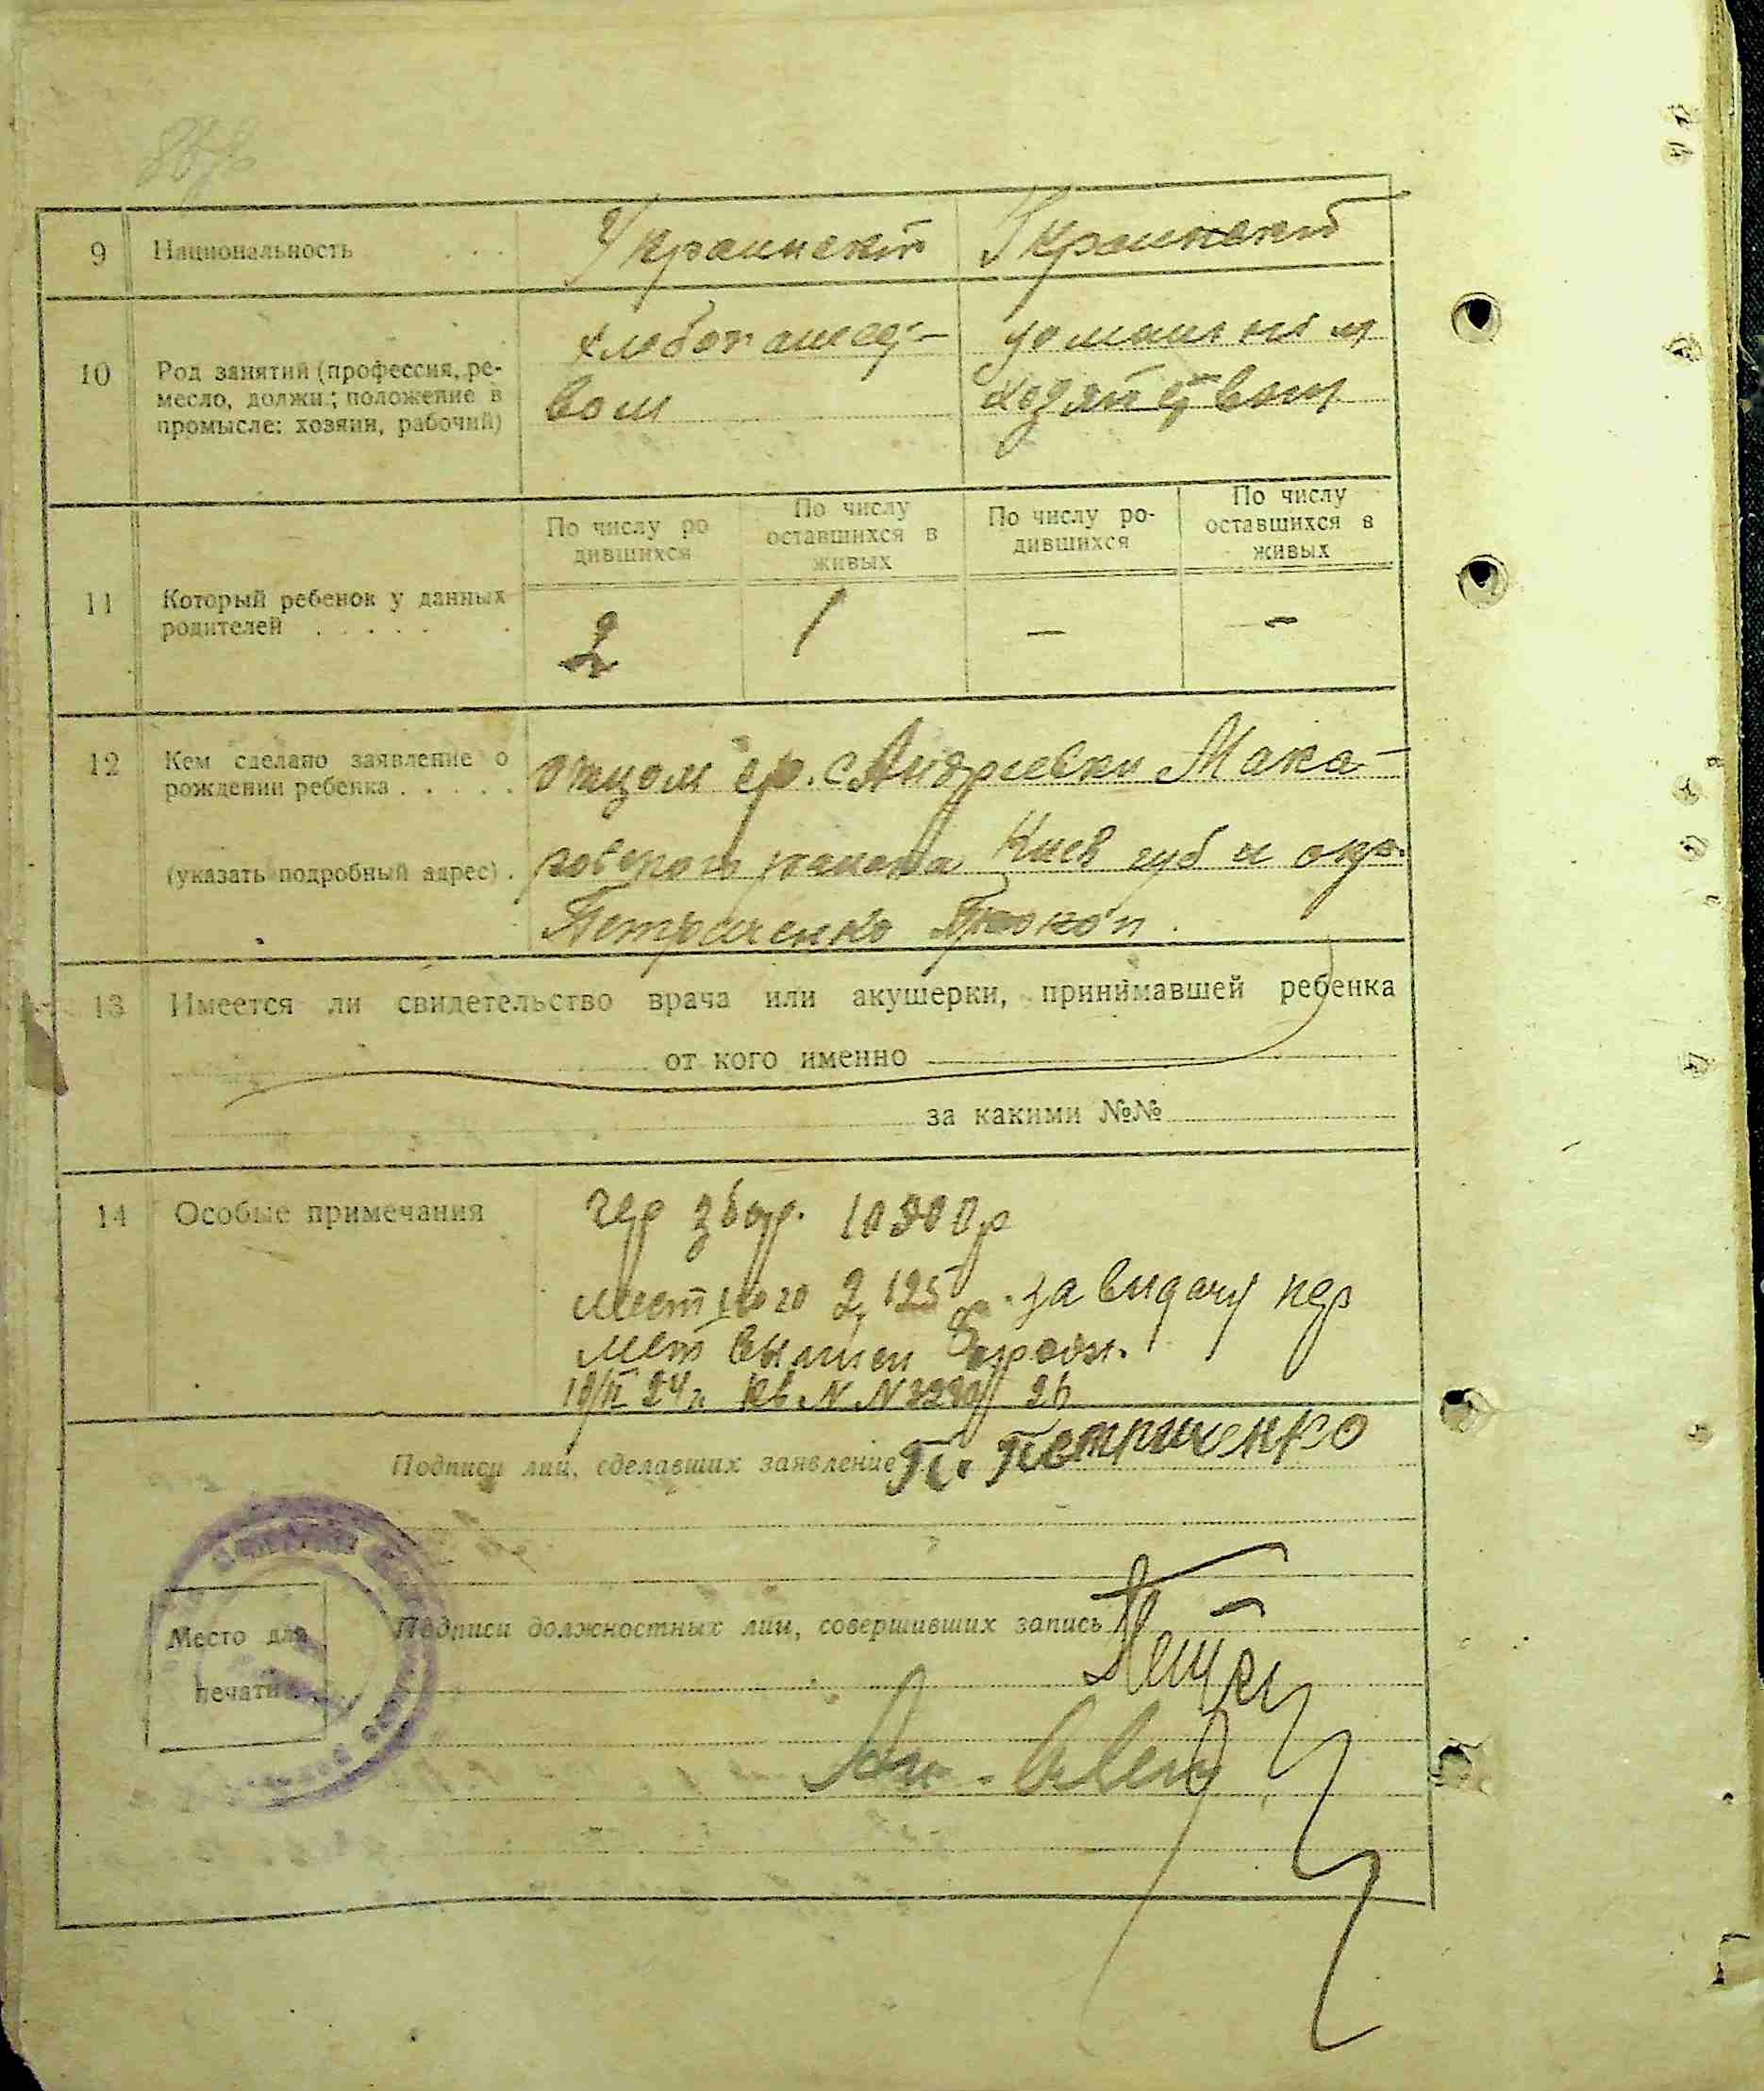 9 Национальность . . . Украинской Украинской
10 Род занятий (профессия, ре-
месло, должн.; положение в
промысле: хозяин, рабочий)
хлебопашест-
вом
домашним
хозяйством
11 Который ребенок у данных
родителей . . . . . .
По числу ро
дившихся
По числу
оставшихся в
живых
По числу ро-
дившихся
По числу
оставшихся в
живых
2 1 — —
12 Кем сделано заявление о
рождении ребенка . . . . .
(указать подробный адрес) .
отцом гр. с Андреевки Мака-
ровского района Киев губ и окр.
Петриченко Прокоп.
13 Имеется ли свидетельство врача или акушерки, принимавшей ребенка
от кого именно
за какими №№
14 Особые примечания
збор.
местного 2, 125 за видачу
мет
24 г. кв N N
Подписи лиц, сделавших заявление П. Петриченко
Подписи должностных лиц, совершивших запись
Место для
печати